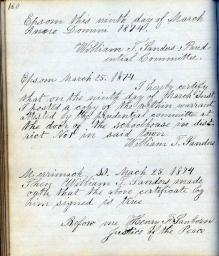 160
Epsom this ninth day of March
Anno Domini 1874.
William F. Sanders Prud
ential Committee.
Epsom March 25. 1874
I hereby certify
that on the ninth day of March inst.
I posted a copy of the within warrant
attested by the Prudential committee at
the door of the schoolhouse in dist
rict No. in said town
William F. Sanders
Merrimack SS. March 25. 1874
Then William F. Sanders made
oath that the above certificate by
him signed is true
Before me Henry F. Sanborn
Justice of the Peace